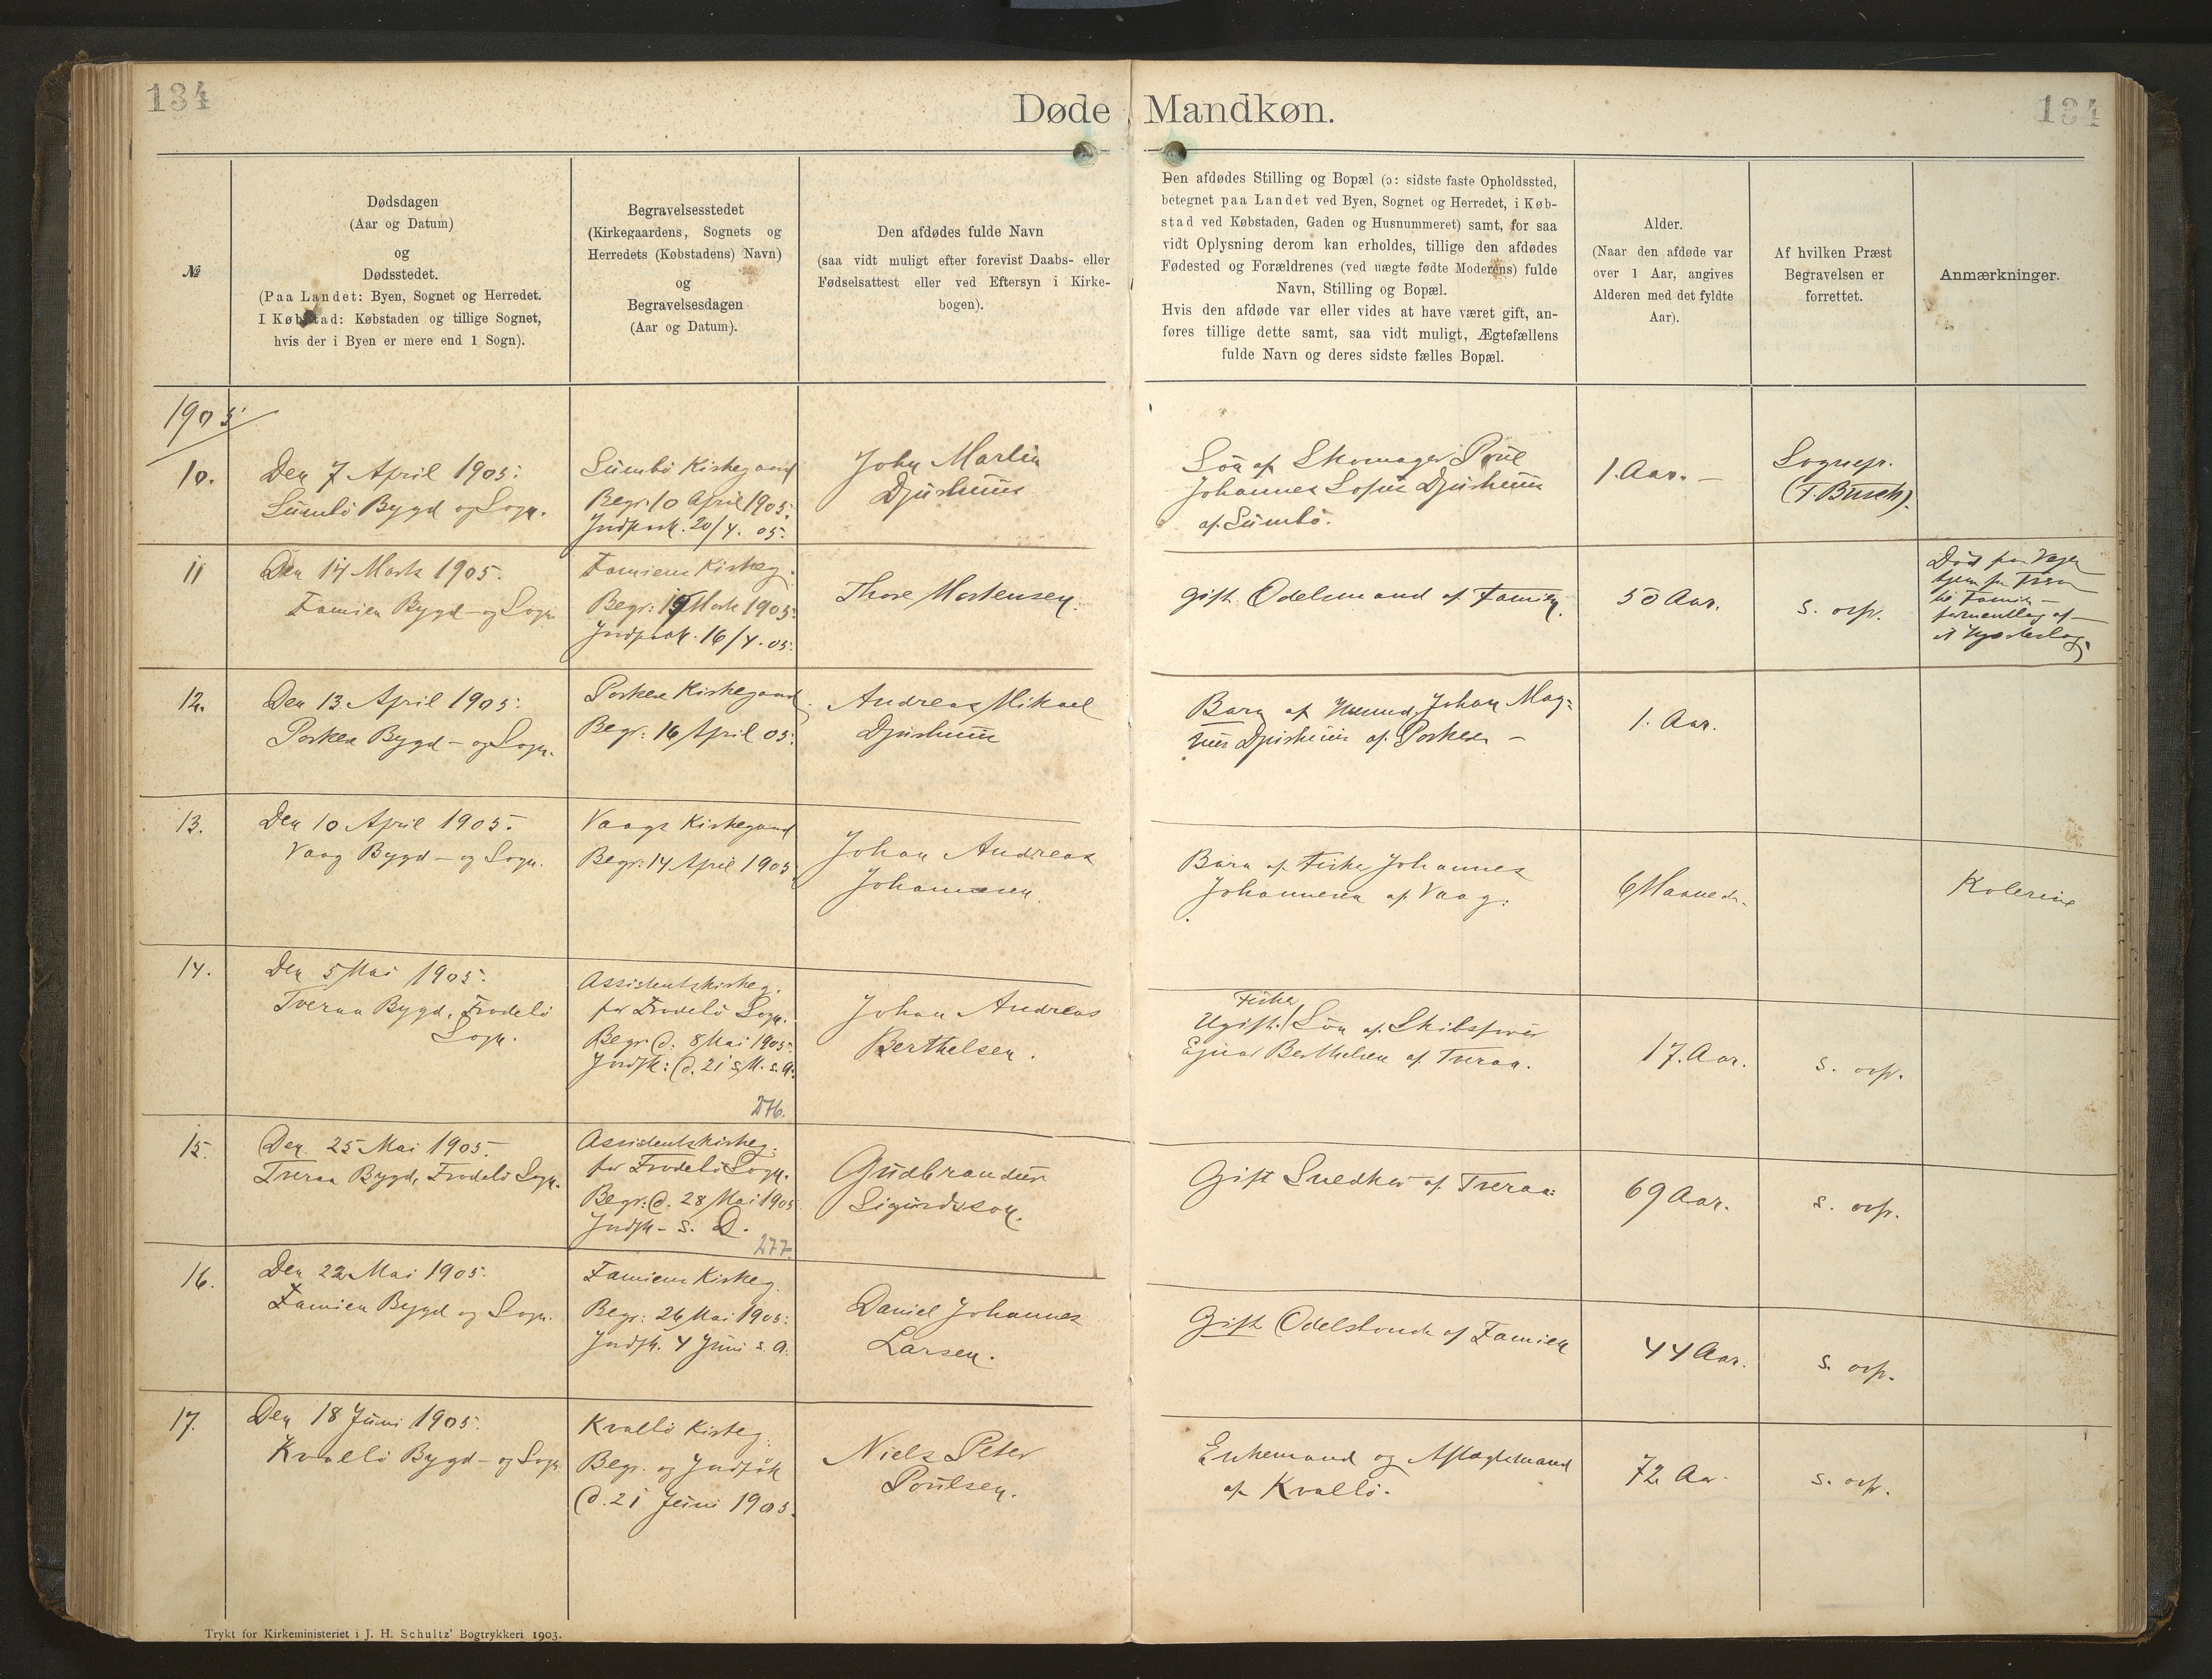 134
Døde Mandkøn.
134
№
Dødsdagen
(Aar og Datum)
og
Dødsstedet.
(Paa Landet: Byen, Sognet og Herredet.
I Købstad: Købstaden og tillige Sognet,
hvis der i Byen er mere end 1 Sogn).
Begravelsesstedet
(Kirkegaardens, Sognets og
Herredets (Købstadens) Navn)
og
Begravelsesdagen
(Aar og Datum).
Den afdødes fulde Navn
(saa vidt muligt efter forevist Daabs- eller
Fødselsattest eller ved Eftersyn i Kirke-
bogen).
Den afdødes Stilling og Bopæl (ɔ: sidste faste Opholdssted,
betegnet paa Landet ved Byen, Sognet og Herredet, i Køb-
stad ved Købstaden, Gaden og Husnummeret) samt, for saa
vidt Oplysning derom kan erholdes, tillige den afdødes
Fødested og Forældrenes (ved uægte fødte Moderens) fulde
Navn, Stilling og Bopæl.
Hvis den afdøde var eller vides at have været gift, an-
føres tillige dette samt, saa vidt muligt, Ægtefællens
fulde Navn og deres sidste fælles Bopæl.
Alder.
(Naar den afdøde var
over 1 Aar, angives
Alderen med det fyldte
Aar).
Af hvilken Præst
Begravelsen er
forrettet.
Anmærkninger.
1905
10.
Den 7 April 1905.
Sumbö Bygd og Sogn.
Sumbö Kirkegaard
Begr. 10 April 1905.
Jndpaak. 20/4. 05.
John Martin
Djurhuus
Søn af Skomager Poul
Johannes Sofus Djurhuus
af Sumbö.
1. Aar. –
Sognepr.
(F. Busch).
11
Den 14 Marts 1905.
Famien Bygd – og Sogn
Famiens Kirkeg.
Begr: 19 Marts 1905.
Jndpaak. 16/4. 05.
Thore Mortensen.
gift Odelsmand af Famien.
50 Aar.
s. ovfr.
Død paa Vejen
hjem fra
til Famien –
formentlig af –
et Hjerteslag.
12.
Den 13 April 1905.
Porkere Bygd – og Sogn.
Porkere Kirkegaard
Begr: 16 April 05.
Andreas Mikael
Djurhuus
Barn af Johan Mag-
nus Djurhuus af Porkere –
1. Aar.
13.
Den 10 April 1905.
Vaag Bygd – og Sogn.
Vaags Kirkegaard
Begr: 14 April 1905
Johan Andreas
Johannesen.
Barn af Fisker Johannes
Johannesen af Vaag.
6 Maaneder.
Kolerine
14.
Den 5 Mai 1905.
Tveraa Bygd, Frodebö
Sogn.
Assistentskirkeg.
for Frodebö Sogn.
Begr. d. 8 Mai 1905.
Jndsk: d. 21 s. M. s. A.
276.
Johan Andreas
Berthelsen.
Fisker
Ugift. / Søn af Skibsfører
Ejnar Berthelsen af Tveraa.
17. Aar.
s. ovfr.
15.
Den 25 Mai 1905.
Tveraa Bygd, Frodebö Sogn.
Assistentskirkeg.
for Frodebö Sogn.
Begr: d. 28 Mai 1905
Jndsk – s. D.
277.
Gudbrandur
Sigurdsson.
Gift Snedker af Tveraa.
69 Aar.
s. ovfr.
16.
Den 22 Mai 1905.
Famien Bygd og Sogn.
Famiens Kirkeg.
Begr: 26 Mai 1905.
Jndsk. 4 Juni s. A.
Daniel Johannes
Larsen.
Gift Odelsbonde af Famien
44 Aar.
s. ovfr.
17.
Den 18 Juni 1905.
Kvalbö Bygd – og Sogn
Kvalbö Kirkeg.
Begr. og Jndsk
d. 21 Juni 1905.
Niels Peter
Poulsen.
Enkemand og Aftægtsmand
af Kvalbö.
72 Aar.
s. ovfr.
Trykt for Kirkeministeriet i J. H. Schultz' Bogtrykkeri 1903.